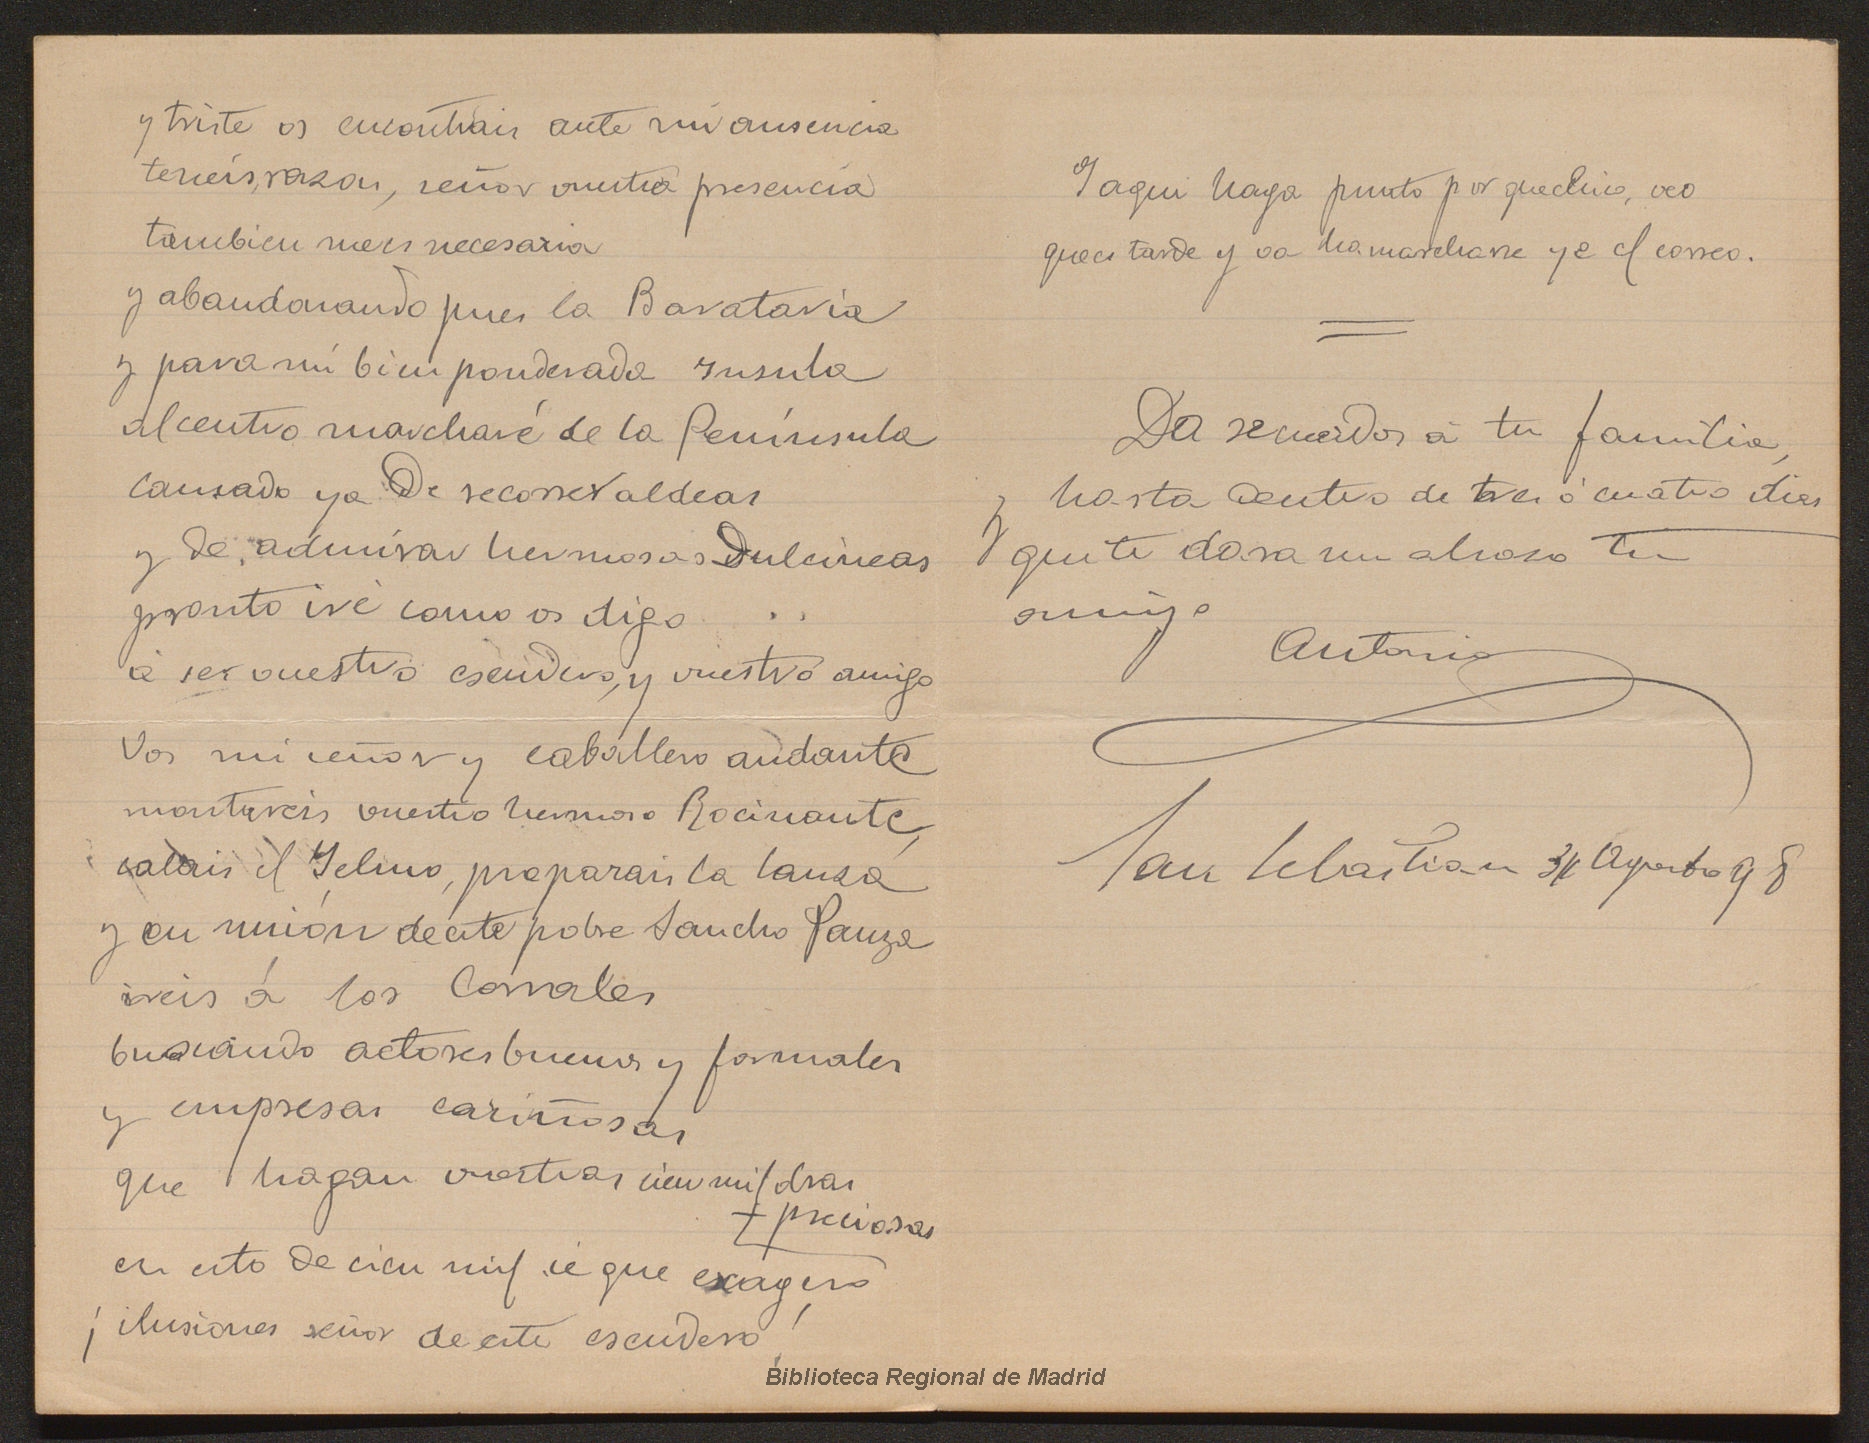 y triste os encontrais ante mi ausencia
teneis, razon, señor vuestra presencia
tambien mees necesaria
y abandonando pues la Barataria
y para mi bien ponderada Insula
al centro marcharé de la Península
cansado ya De recorrer aldeas
y de admirar hermosas Dulcineas
pronto iré como os digo . .
á ser vuestro escudero, y vuestro amigo
Vos mi señor y caballero andante
montareis vuestro hermoso Rocinante,
calais el Yelmo, preparais la lanza
y en unión de este pobre Sancho Panza
ireis á los Corrales
buscando actores buenos y formales
y empresas cariñosas
que hagan vuestras cien mil obras
+ preciosas
en esto de cien mil sé que exagero
¡ ilusiones señor de este escudero!
Y aqui hago punto por que chico, veo
que es tarde y va ha marcharse ya el correo.
Da recuerdos á tu familia,
y hasta dentro de tres ó cuatro dias
que te dara un abrazo tu
amigo
Antonio
San Sebastian 31 Agosto 98
Biblioteca Regional de Madrid